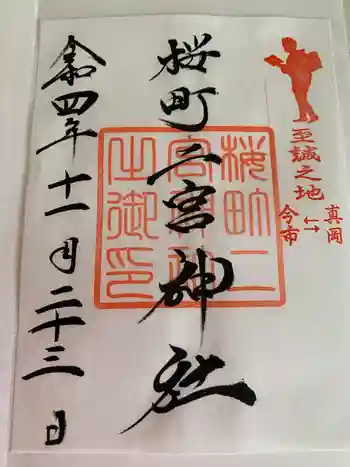 至誠之地
真岡
↔
今市
桜町二宮神社
桜町二
宮神社
之御印
令四年十一月二十三日